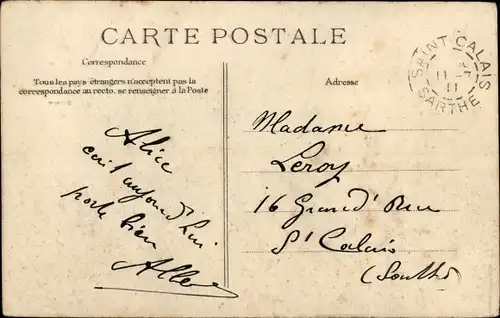 CARTE POSTALE
Correspondance
Tous les pays étrangers n'acceptent pas la
correspondance au recto. se renseigner à la Poste
Adresse
SAINT-CALAIS
11
11
SARTHE
Alice
aujourd'hui
porte bien
Madame
Leroy
16 Grand' Rue
St Calais